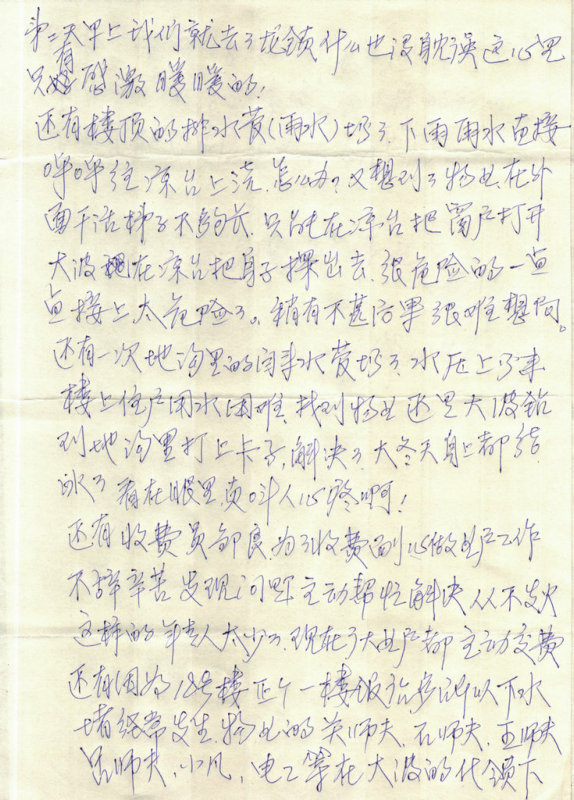 第二天早上我们就去了龙镇什么也没耽误这心里
只有感激暖暖的!
还有楼顶的排水管(雨水)坏了.下雨雨水直接
哗哗往凉台上浇.怎么办?又想到了物业.在外
面干活梯子不够长.只能在凉台把窗户打开
大波在凉台把身子探出去.很危险的一点
点接上太危险了。稍有不甚后果很难想向。
还有一次地沟里的闭来水管坏了.水压上不来
楼上住户用水困难.找到物业还是大波钻
到地沟里打上卡子,解决了.大冬天身上都结
冰了看在眼里真叫人心疼啊!
还有收费员郭良.为了收费耐心做业户工作
不辞辛苦发现问题主动帮忙解决从不发火
这样的年青人太少了.现在广大业户都主动交费
还有因为18号楼正个一楼没治多所以下水
堵经常发生.物业的关师夫.石师夫.王师夫
吕师夫,小凡,电工等在大波的代领下